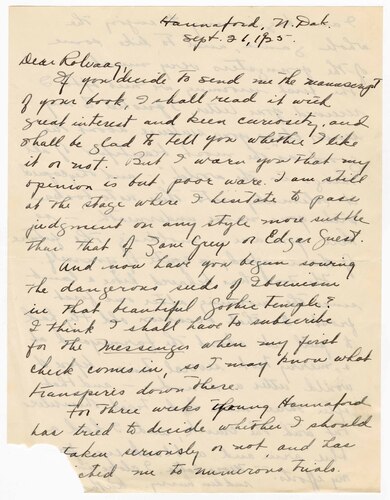 Hannaford, N. Dak.
Sept. 21, 1925.
Dear Rolvaag,
If you decide to send me the manuscript
of your book, I shall read it with
great interest and keen curiosity, and
shall be glad to tell you whether I like
it or not. But I warn you that my
opinion is but poor ware. I am still
at the stage where I hesitate to pass
judgment on any style more subtle
than that of Zane Grey or Edgar Guest.
And now have you begun sowing
the dangerous seeds of Ibsenism
in that beautiful Gothic temple?
I think I shall have to subscribe
for the Messenger when my first
check comes in, so I may know what
transpires down there.
For three weeks young Hannaford
has tried to decide whether I should
taken seriously or not, and has
icted me to numerous trials.